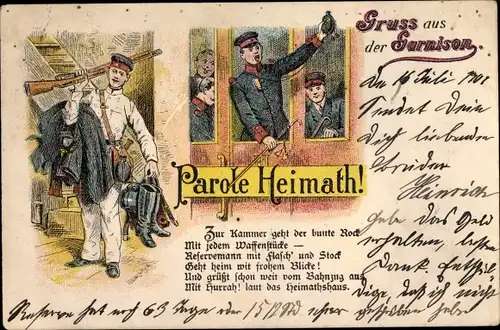 Gruss aus
der Garnison.
Parole Heimath!
Zur Kammer geht der bunte Rock
Mit jedem Waffenstücke —
Reservemann mit Flasch' und Stock
Geht heim mit frohem Blicke!
Und grüßt schon weit vom Bahnzug aus
Mit Hurrah! laut das Heimathshaus.
Juli
sendet Dein
Dich liebender
Bruder
Heinrich
habe das Geld
erhalten, besten
Dank.
Reserve hat noch 63 Tage